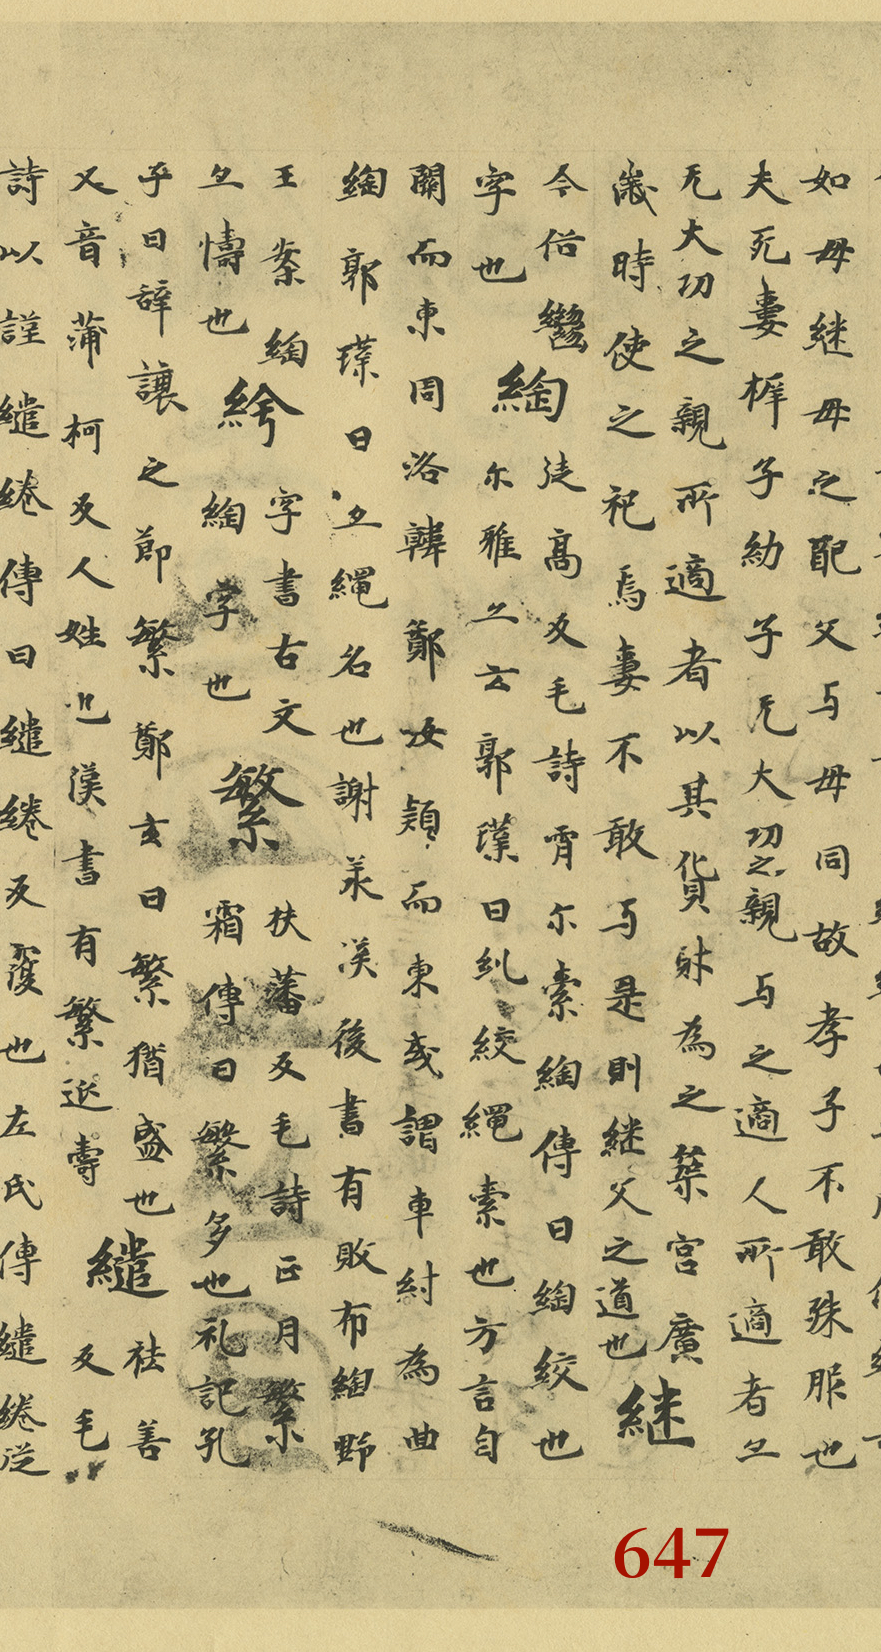 如母継母之配父与母同故孝子不敢殊服也
夫死妻稺子幼子无大功之親与之適人所適者亦
无大功之親所適者以其貨財為之築宮廣
歳時使之祀焉妻不敢与是則継父之道也
継
今俗
字也
綯
徒髙反毛詩霄尓索綯傳曰綯絞也
尓雅亦云郭璞曰糺絞繩索也方言自
關而東周洛韓鄭汝潁而東或謂車紂為曲
綯郭璞曰亦繩名也謝承漢後書有敗布綯野
王案綯
亦幬也
字書古文
綯字也
繁
扶藩反毛詩正月繁
霜傳曰繁多也礼記孔
子曰辞讓之節繁鄭玄曰繁猶盛也
又音蒲柯反人姓也漢書有繁延壽
繾
祛善
反毛
詩以謹繾綣傳曰繾綣反覆也左氏傳繾綣従
647